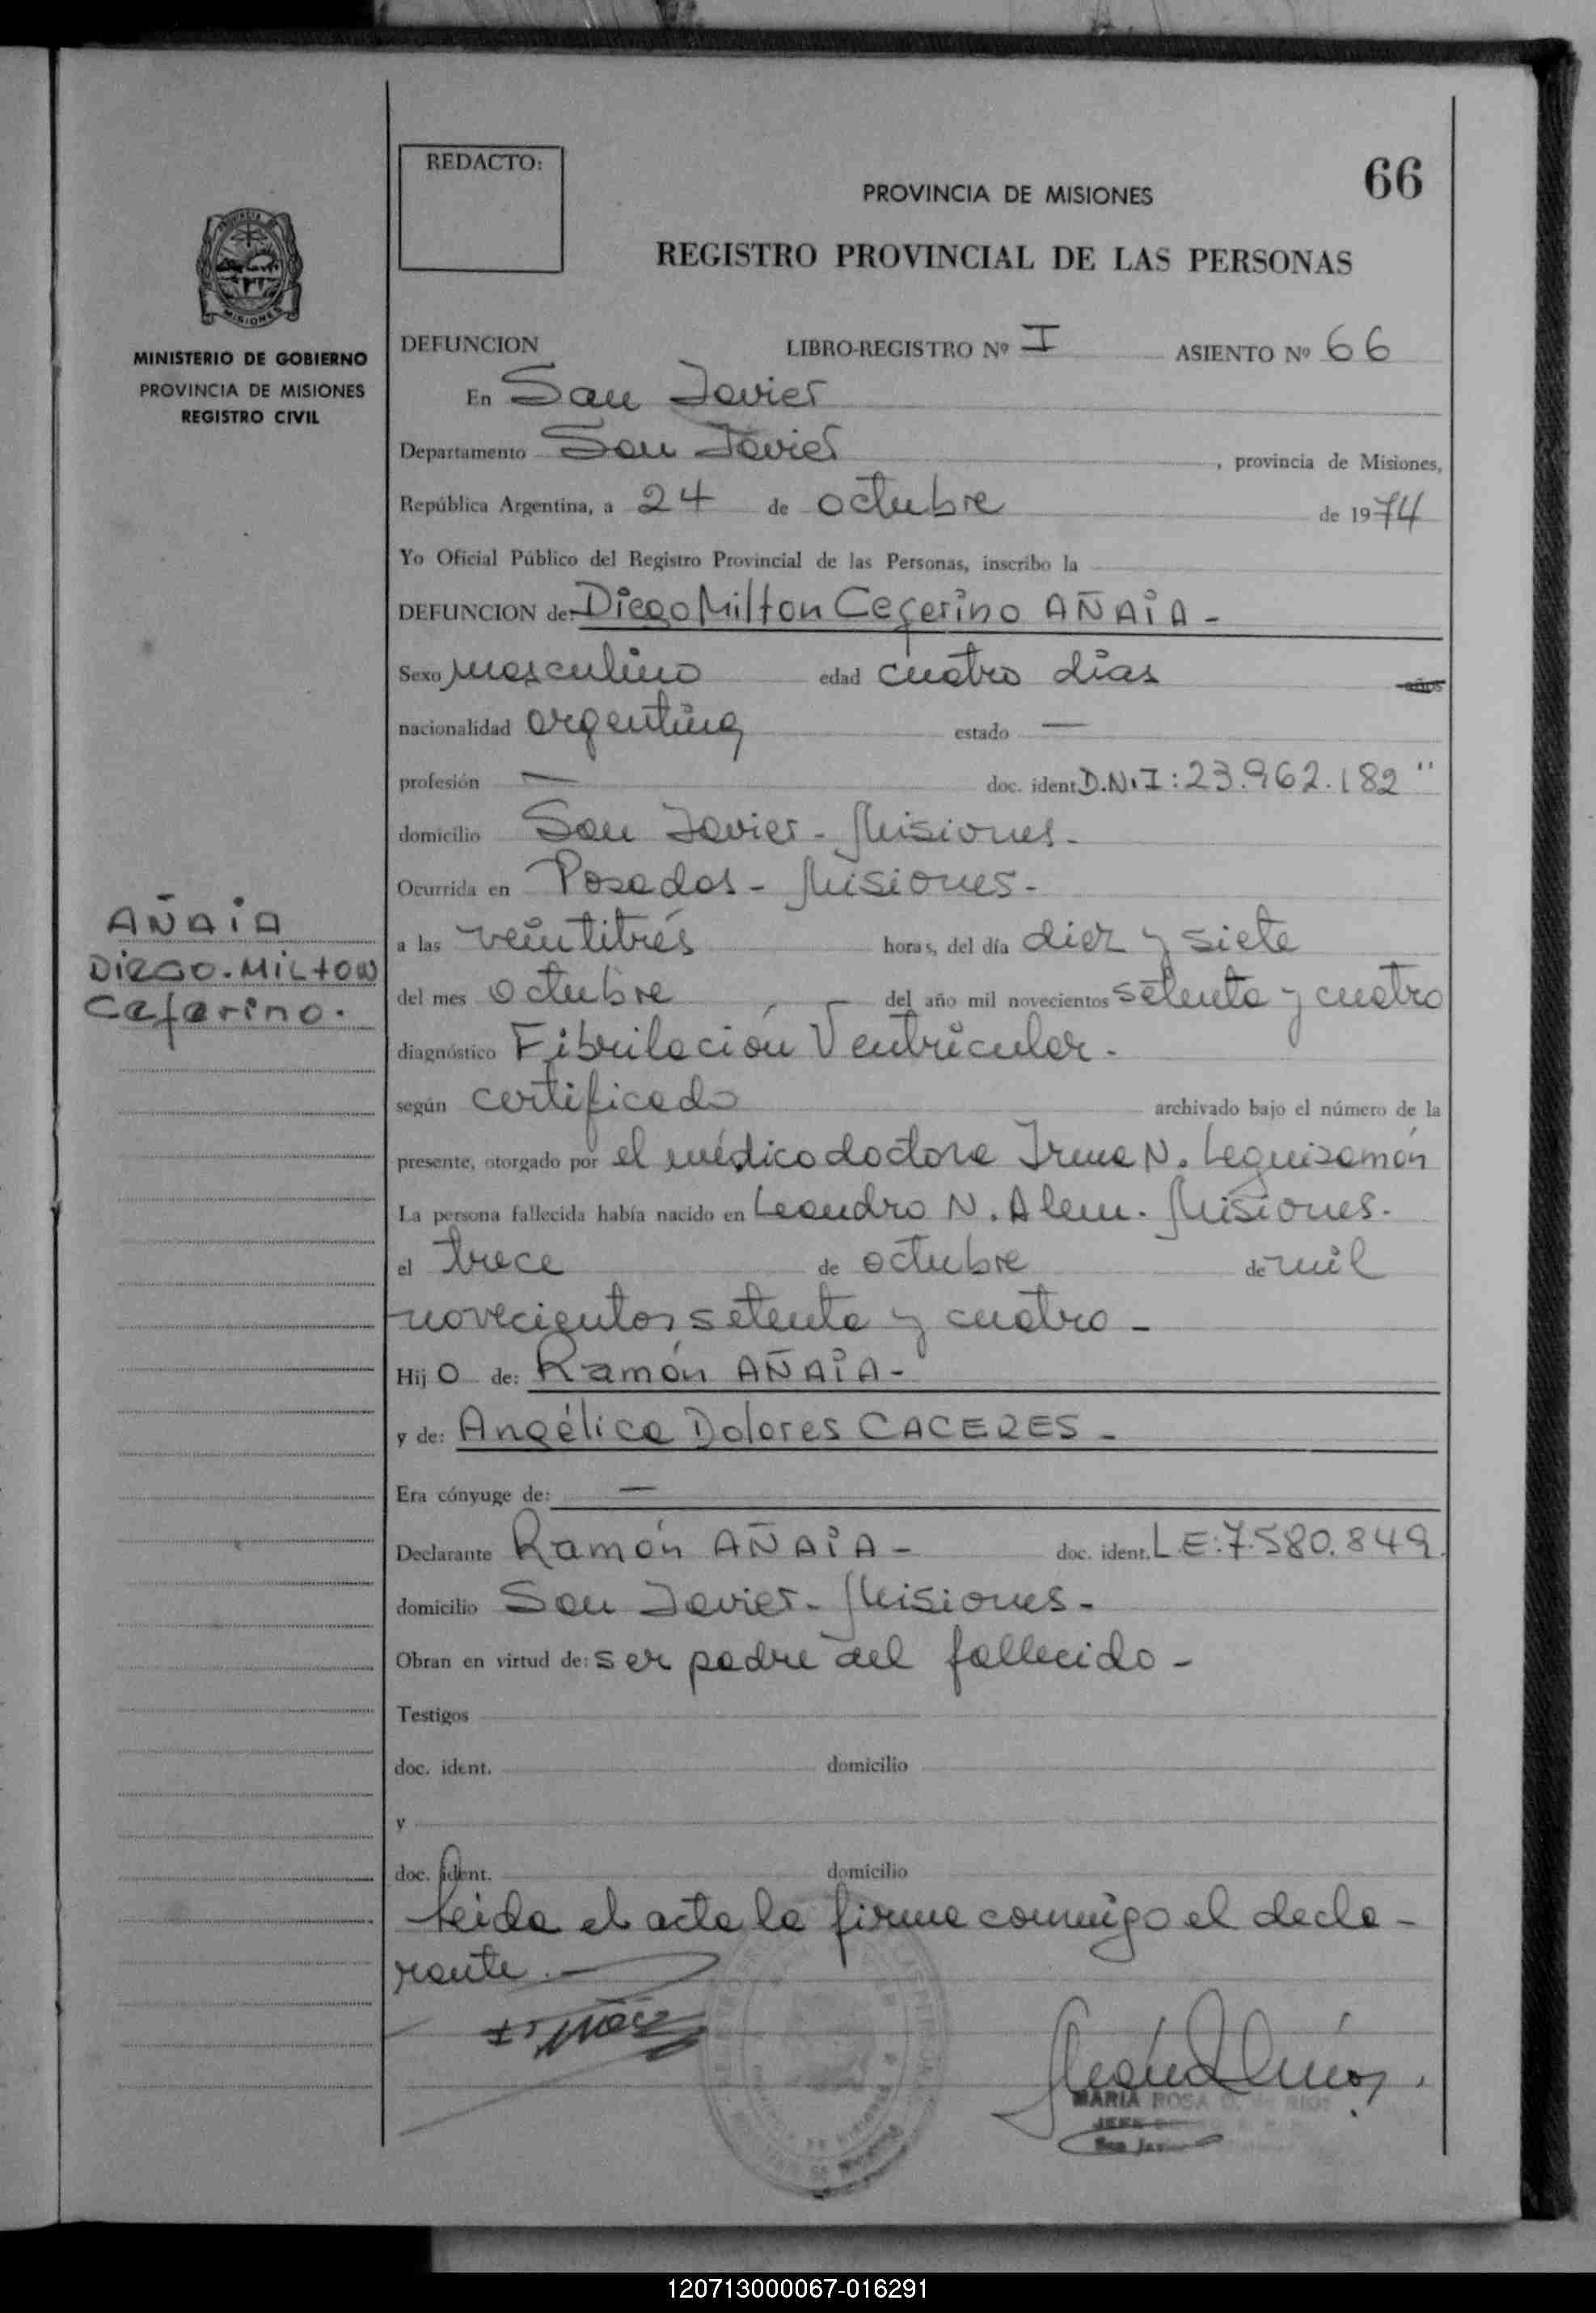 66
REDACTO:
PROVINCIA DE MISIONES
REGISTRO PROVINCIAL DE LAS PERSONAS
MISIONES
MINISTERIO DE GOBIERNO
PROVINCIA DE MISIONES
REGISTRO CIVIL
DEFUNCION LIBRO-REGISTRO Nº I ASIENTO Nº 66
En San Javier
Departamento San Javier, provincia de Misiones,
República Argentina, a 24 de octubre de 1974
Yo Oficial Público del Registro Provincial de las Personas, inscribo la
DEFUNCION de: Diego Milton Ceferino AÑAIA -
Sexo masculino edad cuatro días años
nacionalidad argentina estado —
profesión — doc. ident. D.N.I: 23.962.182 "
domicilio San Javier - Misiones -
Ocurrida en Posadas - Misiones -
a las veintitrés horas, del día diez y siete
del mes octubre del año mil novecientos setenta y cuatro
diagnóstico Fibrilación Ventricular -
según certificado archivado bajo el número de la
presente, otorgado por el médico doctora Irma N. Leguizamón
La persona fallecida había nacido en Leandro N. Alem - Misiones -
el trece de octubre de mil
novecientos setenta y cuatro -
Hijo de: Ramón AÑAIA -
y de: Angélica Dolores CACERES -
Era cónyuge de: —
Declarante Ramón AÑAIA - doc. ident. L.E: 7.580.849.
domicilio San Javier - Misiones -
Obran en virtud de: ser padre del fallecido -
Testigos
doc. ident. domicilio
y
doc. ident. domicilio
Leida el acta la firma conmigo el decla-
rante. —
AÑAIA
DIEGO. MILTON
Ceferino.
MARIA ROSA D. de RIOS
JEFE
San Javier
120713000067-016291